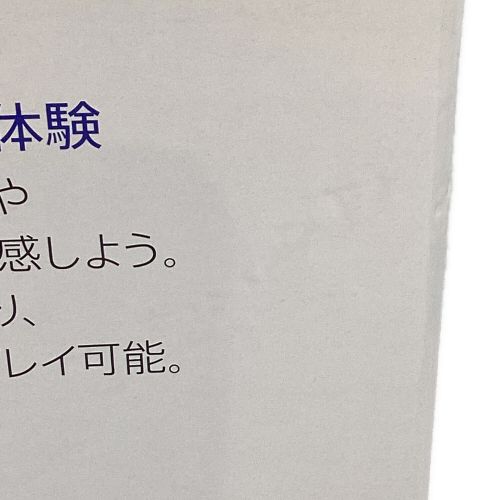 体験
や
感しよう。
り、
レイ可能。